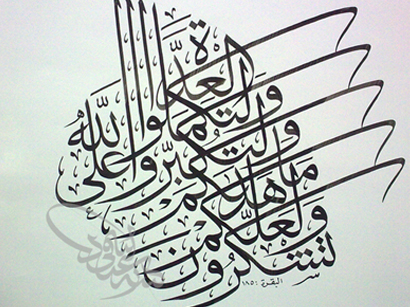 ولتكملوا العدة
ولتكبروا الله على
ما هداكم
ولعلكم
تشكرون
البقرة: ١٨٥